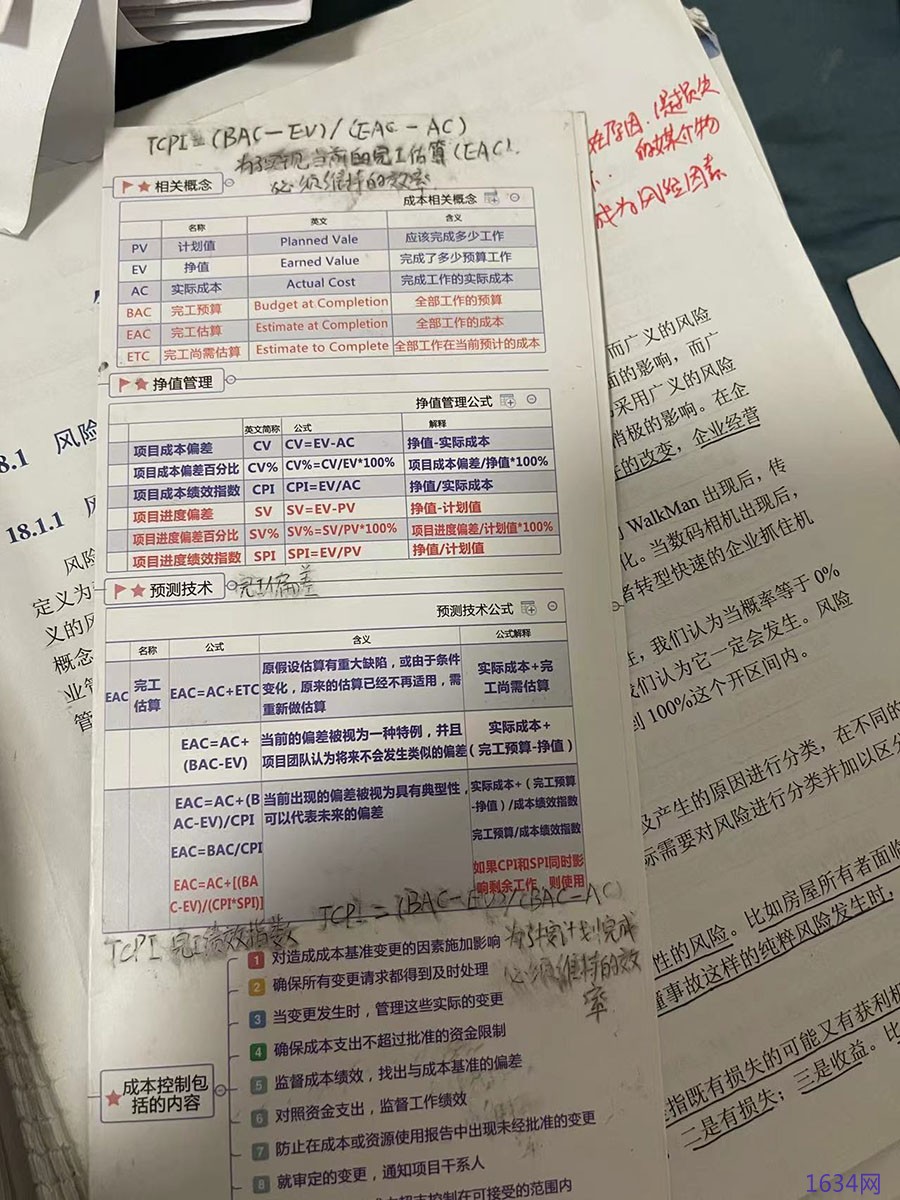 TCPI=(BAC-EV)/(EAC-AC)
为了实现当前的完工估算(EAC).
必须维持的效率
相关概念
成本相关概念
名称 英文 含义
PV 计划值 Planned Vale 应该完成多少工作
EV 挣值 Earned Value 完成了多少预算工作
AC 实际成本 Actual Cost 完成工作的实际成本
BAC 完工预算 Budget at Completion 全部工作的预算
EAC 完工估算 Estimate at Completion 全部工作的成本
ETC 完工尚需估算 Estimate to Complete 全部工作在当前预计的成本
挣值管理
挣值管理公式
英文简称 公式 解释
项目成本偏差 CV CV=EV-AC 挣值-实际成本
项目成本偏差百分比 CV% CV%=CV/EV*100% 项目成本偏差/挣值*100%
项目成本绩效指数 CPI CPI=EV/AC 挣值/实际成本
项目进度偏差 SV SV=EV-PV 挣值-计划值
项目进度偏差百分比 SV% SV%=SV/PV*100% 项目进度偏差/计划值*100%
项目进度绩效指数 SPI SPI=EV/PV 挣值/计划值
预测技术 完工偏差
预测技术公式
名称 公式 含义 公式解释
EAC 完工
估算
EAC=AC+ETC
原假设估算有重大缺陷，或由于条件
变化，原来的估算已经不再适用，需
重新做估算
实际成本+完
工尚需估算
EAC=AC+
(BAC-EV)
当前的偏差被视为一种特例，并且
项目团队认为将来不会发生类似的偏差
实际成本+
(完工预算-挣值)
EAC=AC+(B
AC-EV)/CPI
EAC=BAC/CPI
EAC=AC+[(BA
C-EV)/(CPI*SPI)]
当前出现的偏差被视为具有典型性，
可以代表未来的偏差
实际成本+（完工预算
-挣值）/成本绩效指数
完工预算/成本绩效指数
如果CPI和SPI同时影
响剩余工作，则使用
TCPI 完工绩效指数 TCPI=(BAC-EV)/(BAC-AC)
为了按计划完成
必须维持的效
率
成本控制包
括的内容
1 对造成成本基准变更的因素施加影响
2 确保所有变更请求都得到及时处理
3 当变更发生时，管理这些实际的变更
4 确保成本支出不超过批准的资金限制
5 监督成本绩效，找出与成本基准的偏差
6 对照资金支出，监督工作绩效
7 防止在成本或资源使用报告中出现未经批准的变更
8 就审定的变更，通知项目干系人
控制在可接受的范围内
8.1 风险
18.1.1 风
风险
定义为
义的风
概念
业管
管
因.是损失
的媒介物
成为风险因素
而广义的风险
面的影响，而广
采用广义的风险
消极的影响。在企
的改变，企业经营
WalkMan 出现后，传
化。当数码相机出现后，
者转型快速的企业抓住机
，我们认为当概率等于 0%
我们认为它一定会发生。风险
到 100%这个开区间内。
及产生的原因进行分类，在不同的
际需要对风险进行分类并加以区分
性的风险。比如房屋所有者面临
撞事故这样的纯粹风险发生时，
指既有损失的可能又有获利机
二是有损失；三是收益。比
1634网